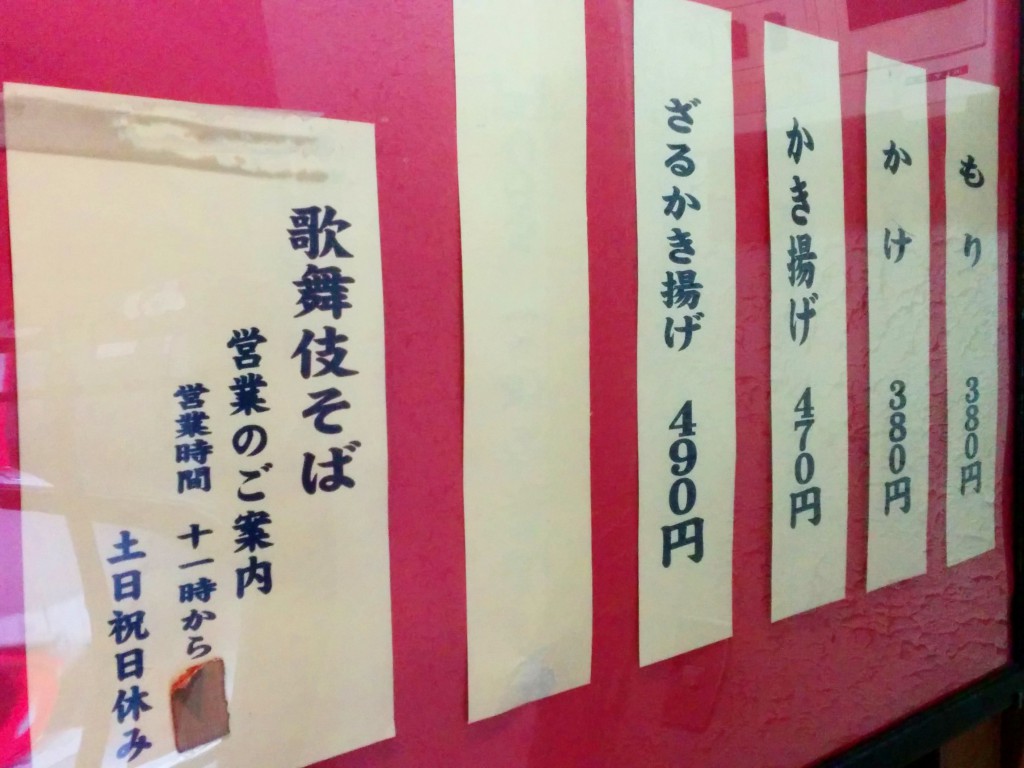 もり 380円
かけ 380円
かき揚げ 470円
ざるかき揚げ 490円
歌舞伎そば
営業のご案内
営業時間 十一時から
土日祝日休み